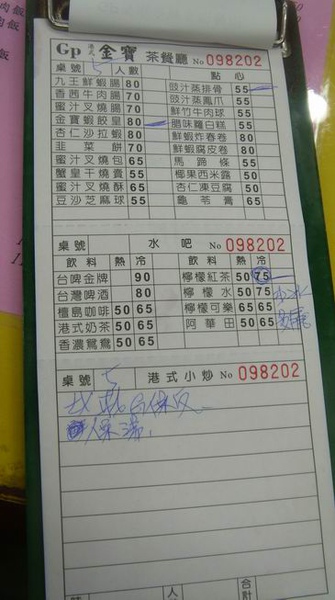 Gp 港式 金寶 茶餐廳 No 098202
桌號 5 人數 點心
九王鮮蝦腸 80 豉汁蒸排骨 55
香茜牛肉腸 70 豉汁蒸鳳爪 55
蜜汁叉燒腸 70 鮮竹牛肉球 55
金寶蝦餃皇 80 腊味蘿白糕 55
杏仁沙拉蝦 80 鮮蝦炸春卷 80
韭菜餅 70 鮮蝦腐皮卷 80
蜜汁叉燒包 65 馬蹄條 55
蟹皇干燒賣 55 椰果西米露 50
蜜汁叉燒酥 65 杏仁凍豆腐 50
豆沙芝麻球 55 龜苓膏 65
桌號 水吧 No 098202
飲料 熱 冷 飲料 熱 冷
台啤金牌 90 檸檬紅茶 50 75
台灣啤酒 80 檸檬水 50 75 少冰
檀島咖啡 50 65 檸檬可樂 65 65
港式奶茶 50 65 阿華田 50 65
香濃鴛鴦 50 65
桌號 5 港式小炒 No 098202
時 人 合計
肉飯
肉飯